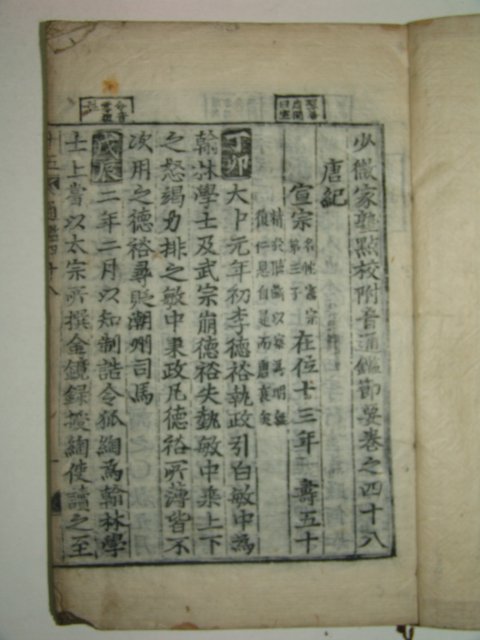 少微家塾點校附音通鑑節要卷之四十八
唐紀
宣宗 名忱憲宗第三子 在位十三年 壽五十
丁卯 大中元年初李德裕執政引白敏中為
翰林學士及武宗崩德裕失勢敏中乘上下
之怒竭力排之敏中秉政凡德裕所薄皆不
次用之德裕尋貶潮州司馬
戊辰 二年二月以知制誥令狐綯為翰林學
士上嘗以太宗所撰金鏡錄授綯使讀之至